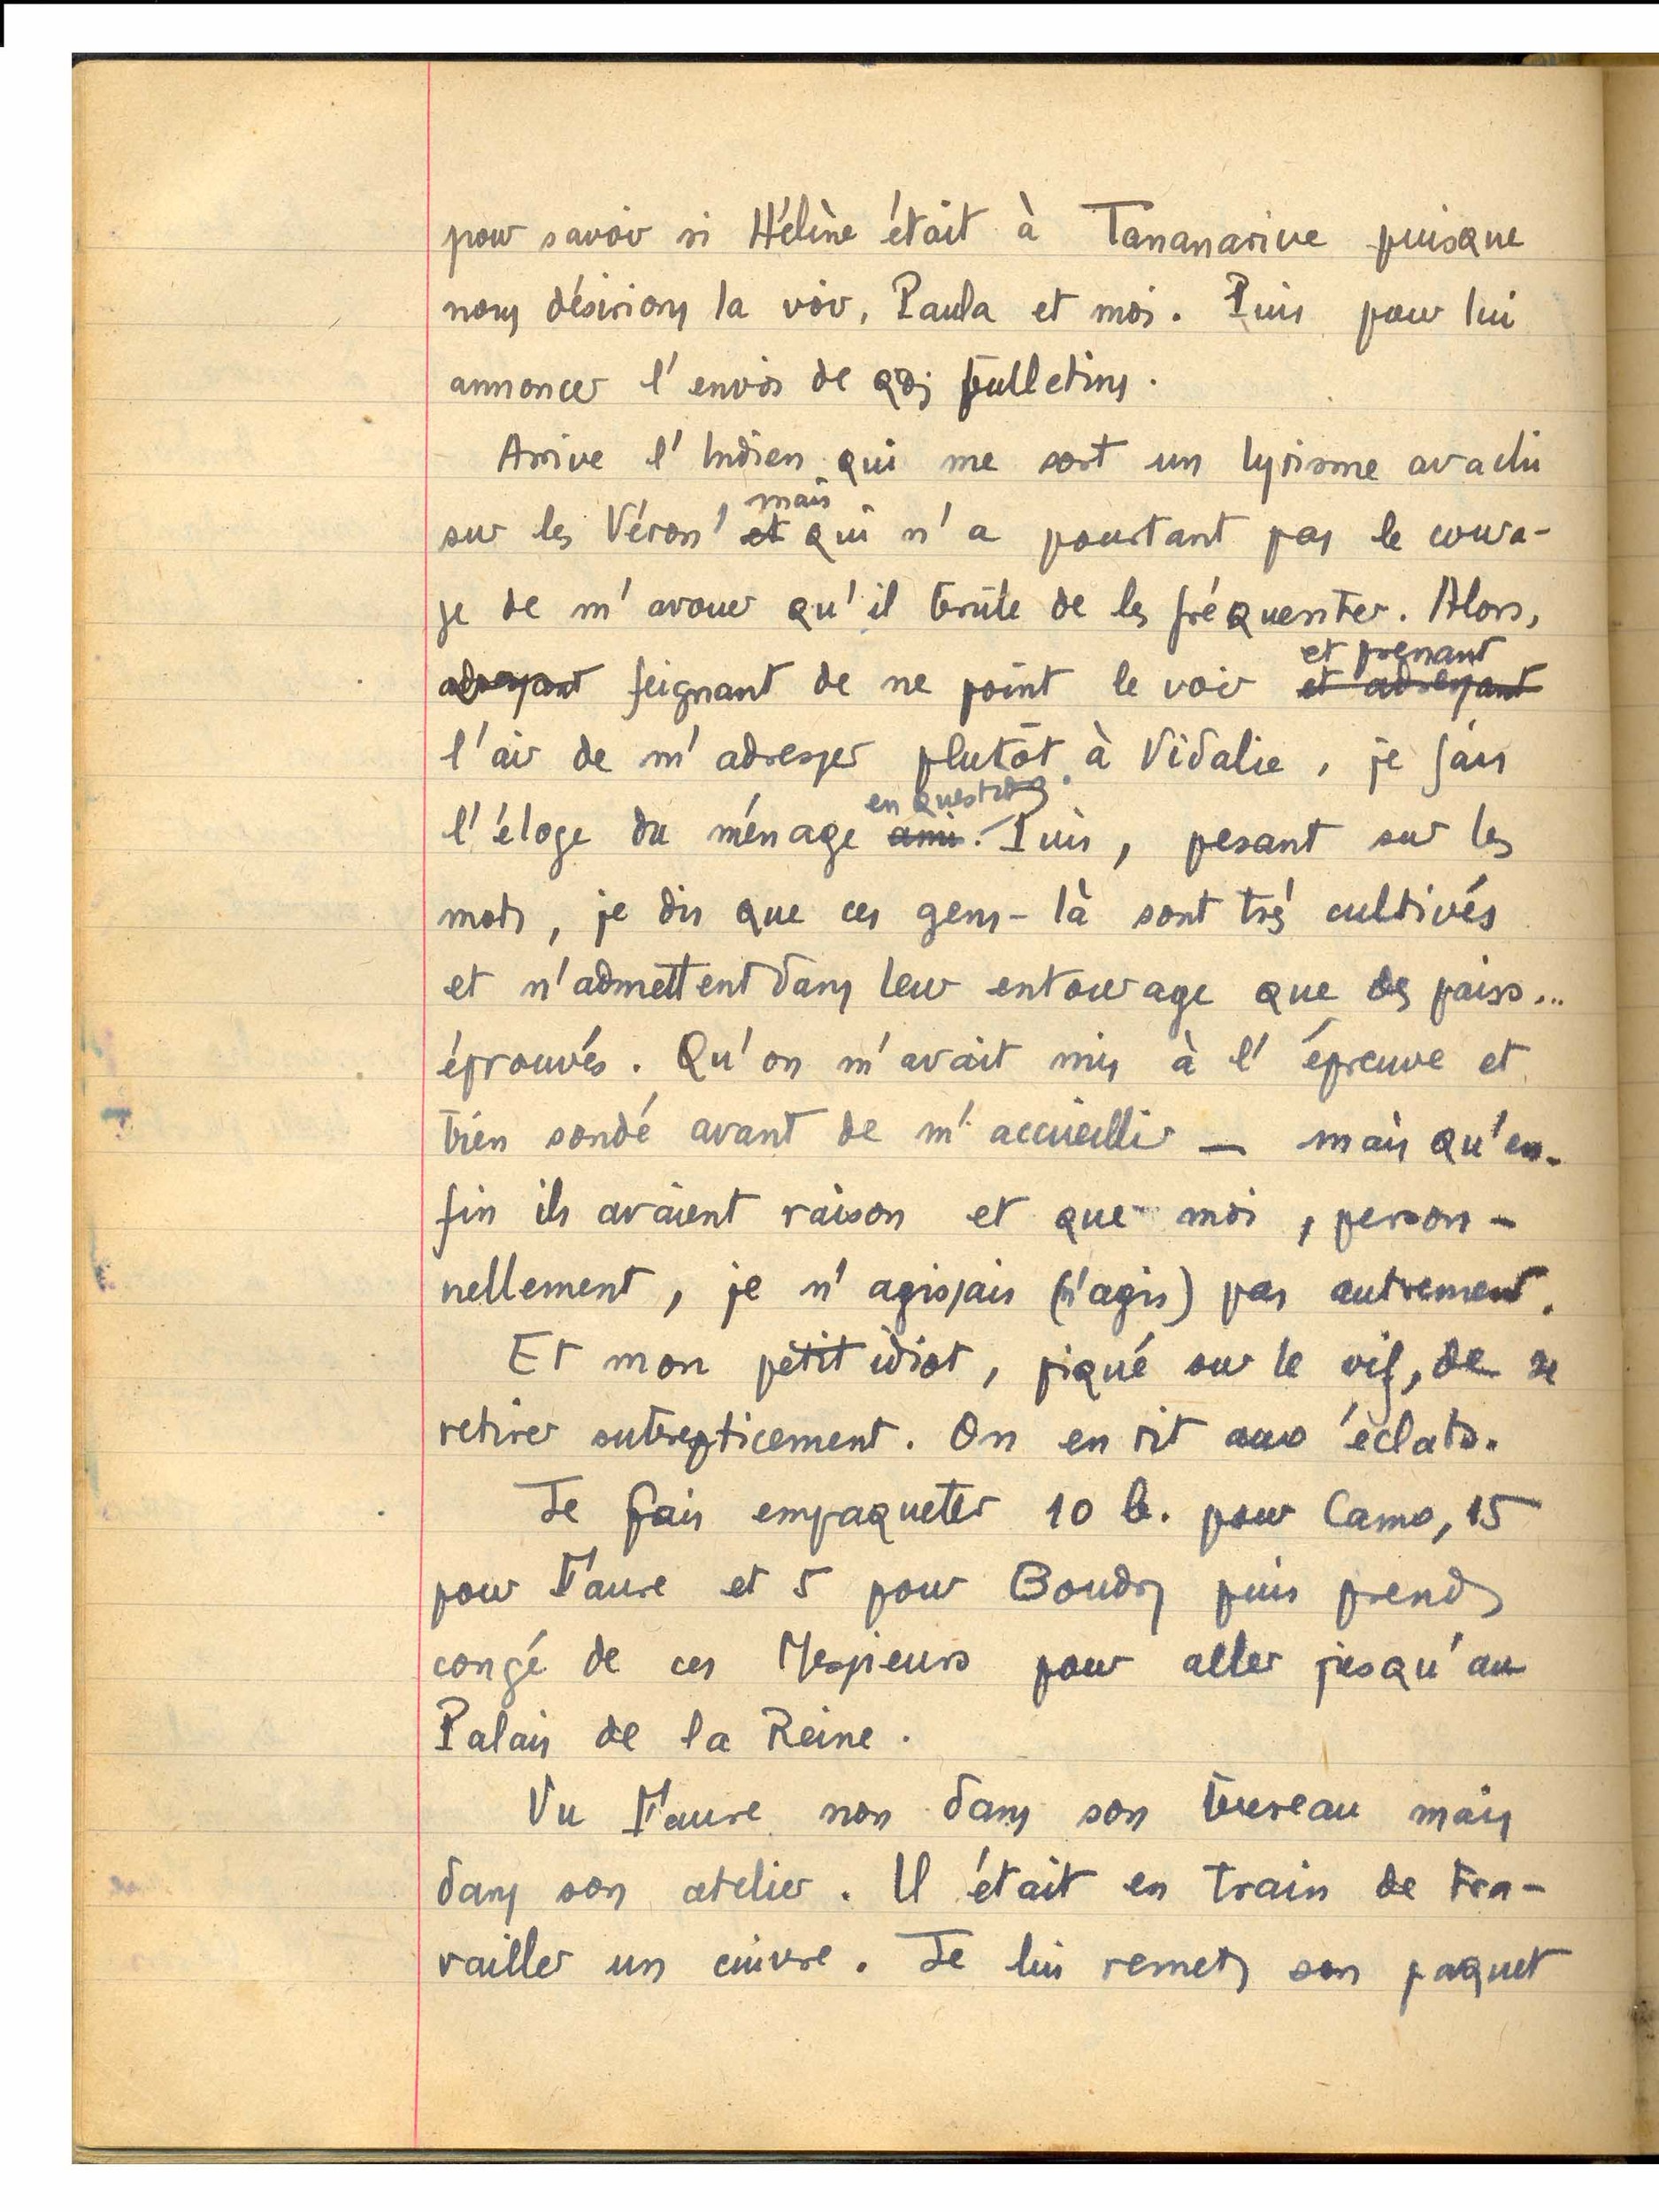 pour savoir si Hélène était à Tananarive puisque
nous désirions la voir, Paula et moi. Puis pour lui
annoncer l'envoi de qqs bulletins.
Arrive l'Indien qui me sort un lyrisme avachi
sur les Véron, mais
et qui n'a pourtant pas le coura-
ge de m'avouer qu'il brûle de les fréquenter. Alors,
adressant feignant de ne point le voir et adressant et prenant
l'air de m'adresser plutôt à Vidalie, je fais
l'éloge du ménage ami en question. Puis, pesant sur les
mots, je dis que ces gens-là sont très cultivés
et n'admettent dans leur entourage que des pairs...
éprouvés. Qu'on m'avait mis à l'épreuve et
bien sondé avant de m'accueillir — mais qu'en-
fin ils avaient raison et que moi, person-
nellement, je n'agissais (n'agis) pas autrement.
Et mon petit idiot, piqué sur le vif, de se
retirer subrepticement. On en rit aux éclats.
Je fais empaqueter 10 b. pour Camo, 15
pour Faure et 5 pour Boudry puis prends
congé de ces Messieurs pour aller jusqu'au
Palais de la Reine.
Vu Faure non dans son bureau mais
dans son atelier. Il était en train de tra-
vailler un cuivre. Je lui remets son paquet